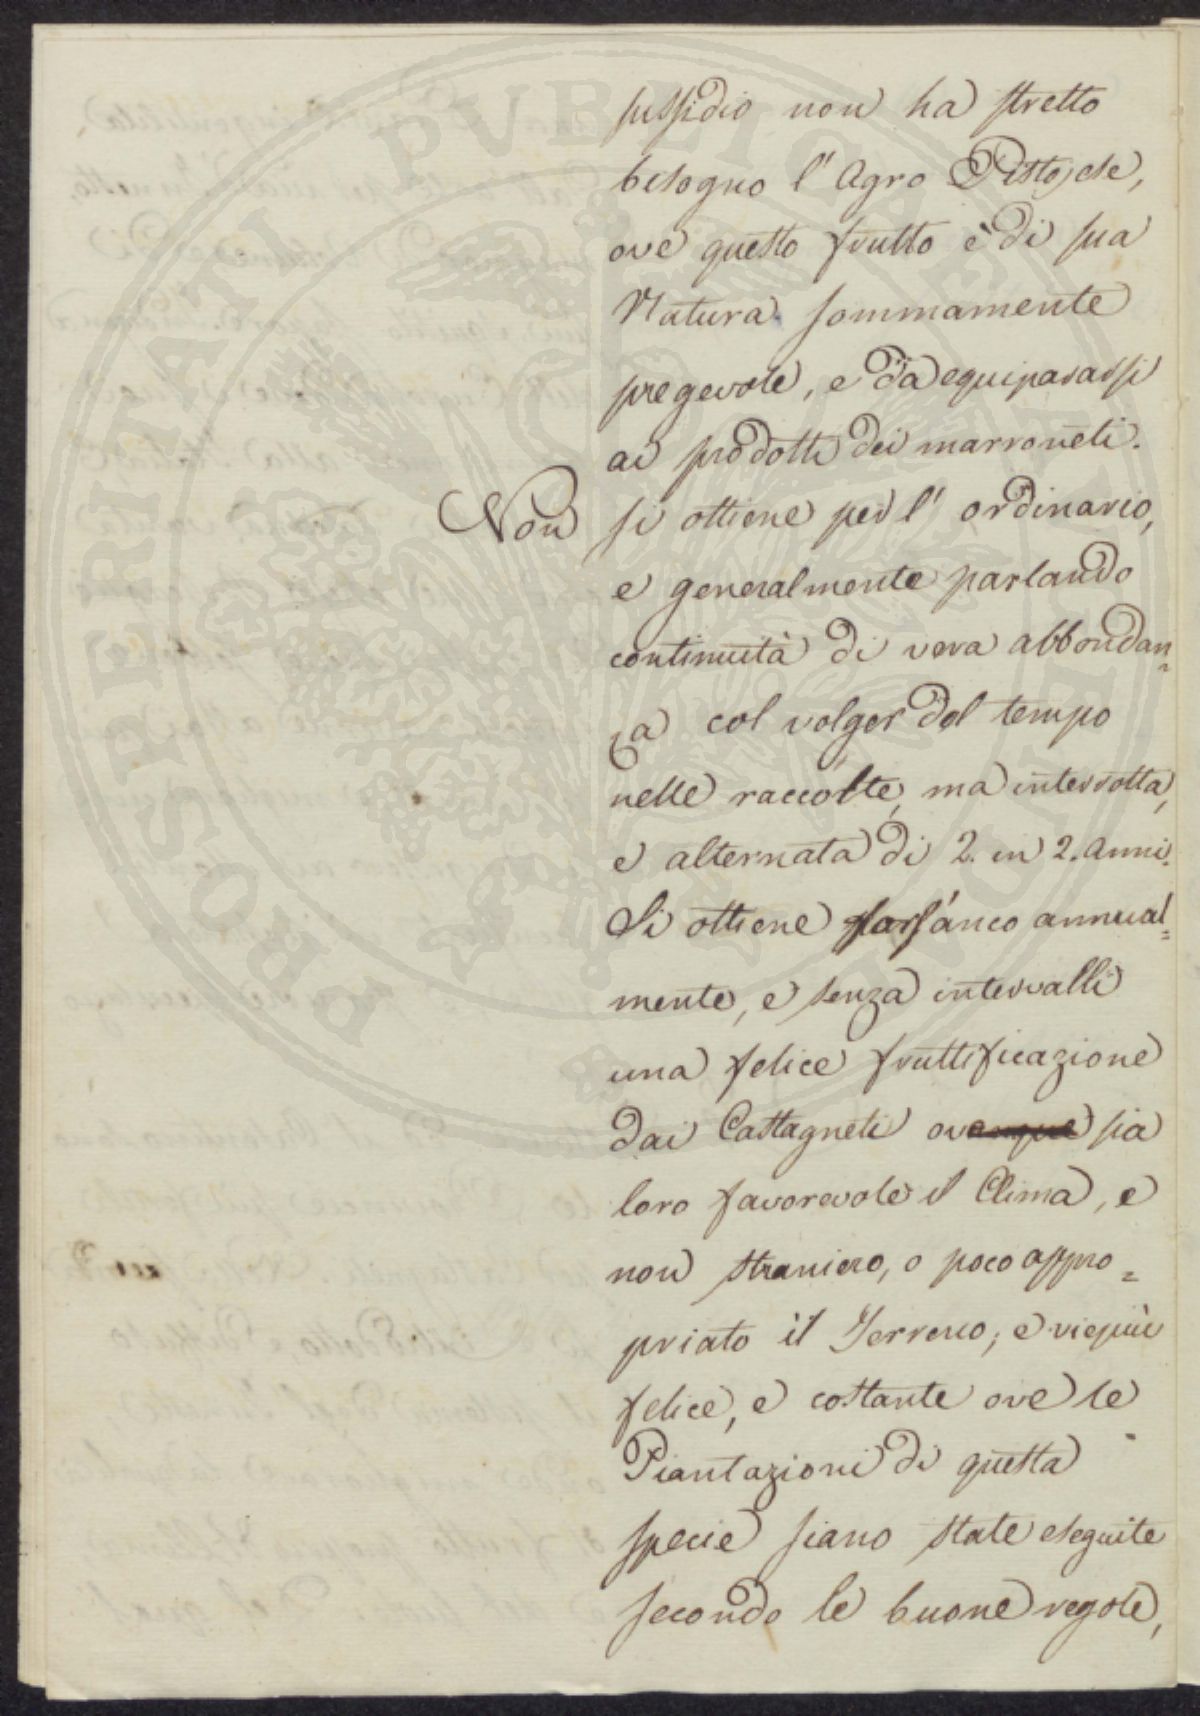 PROSPERITATI PVBLICAE AVGENDAE
sussidio non ha stretto
bisogno l'Agro Pistojese,
ove questo frutto è di sua
Natura sommamente
pregevole, e da equipararsi
ai prodotti dei marroneti.
Non si ottiene per l'ordinario,
e generalmente parlando
continuità di vera abbondan=
za col volger del tempo
nelle raccolte, ma interrotta,
e alternata di 2. in 2. anni.
Si ottiene annual=
mente, e senza intervalli
una felice fruttificazione
dai Castagneti ove sia
loro favorevole il Clima, e
non straniero, o poco appro=
priato il Terreno; e viepiù
felice, e costante ove le
Piantazioni di questa
specie siano state eseguite
secondo le buone regole,